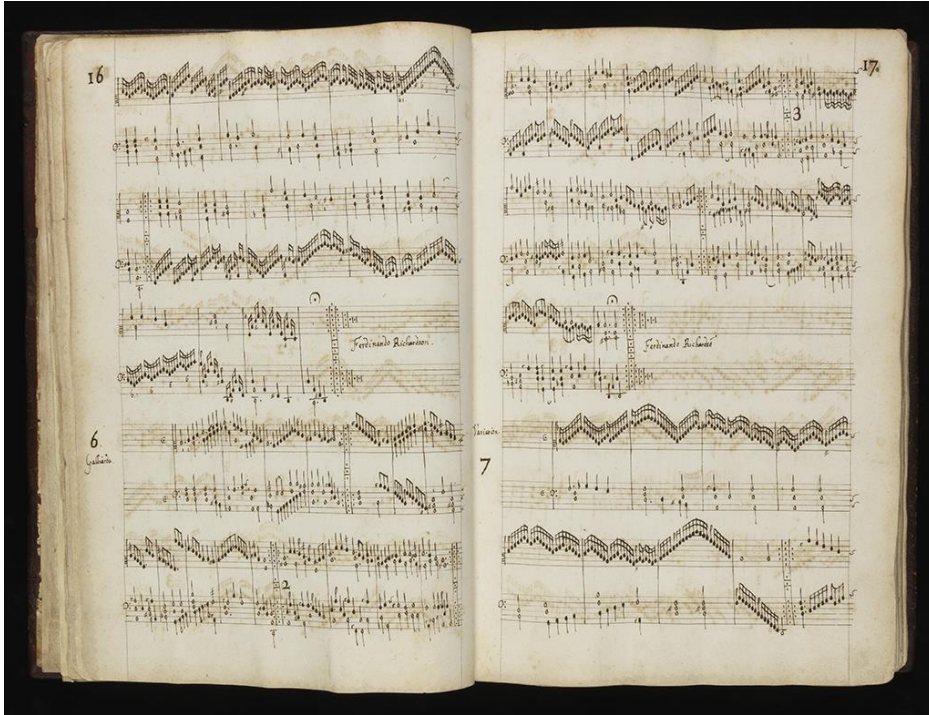 16
Ferdinando Richardson.
6.
Galliarda.
2
17.
3
Ferdinando Richardso
Variatio.
7